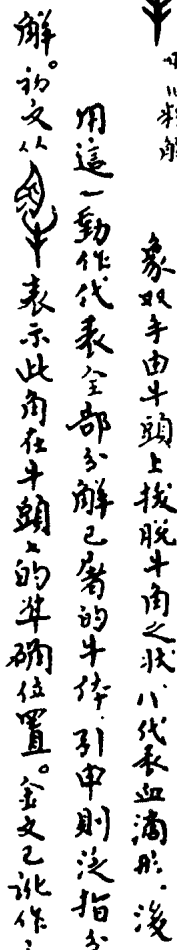 象双手由牛頭上拔脱牛角之状，八代表血滴形。後
用這一動作代表全部分解已屠的牛体，引申則泛指分
解。初文从 表示此角在牛頭上的準确位置。金文已訛作